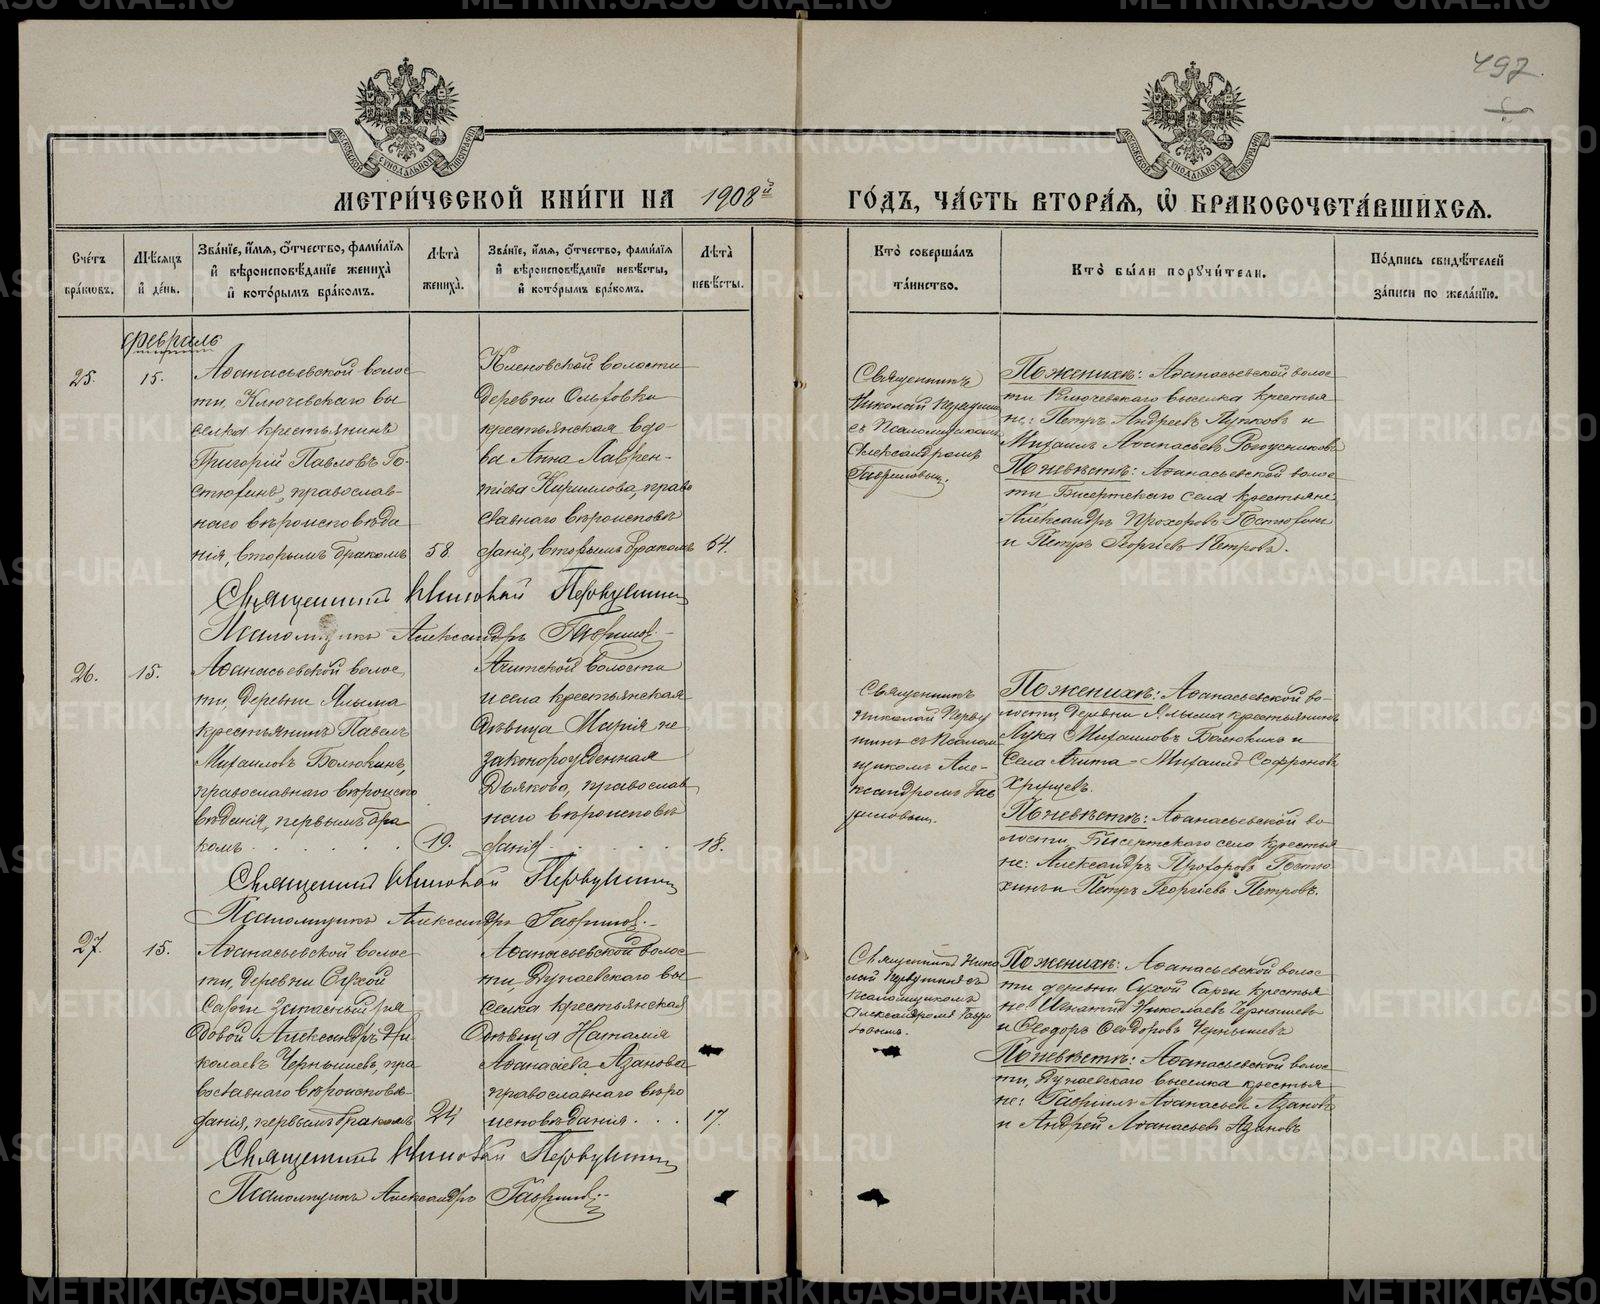 497
МЕТРИ́ЧЕСКОЙ КНИ́ГИ НА 1908й ГО́ДЪ, ЧА́СТЬ ВТОРА́Я, Ѡ БРАКОСОЧЕТА́ВШИХСЯ.
Сче́тъ бра́ковъ.
Мѣ́сяцъ и де́нь.
Зва́нїе, и́мя, о́тчество, фами́лїя и вѣроисповѣ́данїе жениха̀ и кото́рымъ бра́комъ.
Лѣ́та жениха̀.
Зва́нїе, и́мя, о́тчество, фами́лїя и вѣроисповѣ́данїе невѣ́сты, и кото́рымъ бра́комъ.
Лѣ́та невѣ́сты.
Кто̀ соверша́лъ та́инство.
Кто̀ бы́ли поручи́тели.
По́дпись свидѣ́телей за́писи по жела́нїю.
Февраль
25.
15.
Аѳанасьевской волос
ти, Ключевскаго вы
селка крестьянинъ
Григорій Павловъ Го-
стюхинъ, православ-
наго вѣроисповѣда
нія, вторымъ бракомъ
58
Кленовской волости
деревни Ольховки
крестьянская вдо-
ва Анна Лаврен-
тіева Кириллова, право
славнаго вѣроисповѣ
данія, вторымъ бракомъ
54.
Священникъ
Николай Первушин
съ Псаломщикомъ
Александромъ
Гавриловым.
По женихѣ: Аѳанасьевской волос
ти Ключевскаго выселка крестья
не: Петръ Андреевъ Лупковъ и
Михаилъ Аѳанасьевъ
По невѣстѣ: Аѳанасьевской волос
ти Бисертскаго села крестьяне
Александръ Прохоровъ Гостюхин
и Петръ Георгіевъ Петровъ.
Священникъ Николай Первушинъ
Псаломщикъ Александръ Гаврилов.
26.
15.
Аѳанасьевской волос
ти, деревни Ялыма
крестьянинъ Павелъ
Михаиловъ Болюкинъ,
православнаго вѣроиспо
вѣданія, первымъ бра
комъ
19.
Ачитской волости
и села крестьянская
дѣвица Марія не
законорожденная
Дьякова, православ
наго вѣроисповѣ
данія
18.
Священникъ
Николай Перву
шинъ съ Псалом
щикомъ Але-
ксандромъ Гав
риловым.
По женихѣ: Аѳанасьевской во-
лости, деревни Ялыма крестьянинъ
Лука Михаиловъ Болюкинъ и
села Ачита - Михаилъ Софроновъ
Хрущевъ.
По невѣстѣ: Аѳанасьевской во
лости, Бисертскаго села крестья
не: Александръ Прохоровъ Гостю
хинъ и Петръ Георгіевъ Петровъ.
Священникъ Николай Первушинъ
Псаломщикъ Александръ Гаврилов.
27.
15.
Аѳанасьевской волос
ти, деревни Сухой
Сарги запасный ря
довой Александръ Ни-
колаевъ Чернышевъ, пра
вославнаго вѣроисповѣ-
данія, первымъ бракомъ
24
Аѳанасьевской волос
ти, Дунаевскаго вы
селка крестьянская
дѣвица Наталія
Аѳанасіева Азанова
православнаго вѣро
исповѣданія
17.
Священникъ Нико
лай Первушинъ съ
Псаломщикомъ
Александромъ Гаври
ловымъ.
По женихѣ: Аѳанасьевской волос
ти деревни Сухой Сарги крестья
не: Игнатій Николаевъ Чернышевъ
и Ѳеодоръ Ѳеодоровъ Чернышевъ
По невѣстѣ: Аѳанасьевской волос
ти, Дунаевскаго выселка крестья
не: Гавріилъ Аѳанасьев Азановъ
и Андрей Аѳанасьевъ Азановъ
Священникъ Николай Первушинъ
Псаломщикъ Александръ Гаврилов.